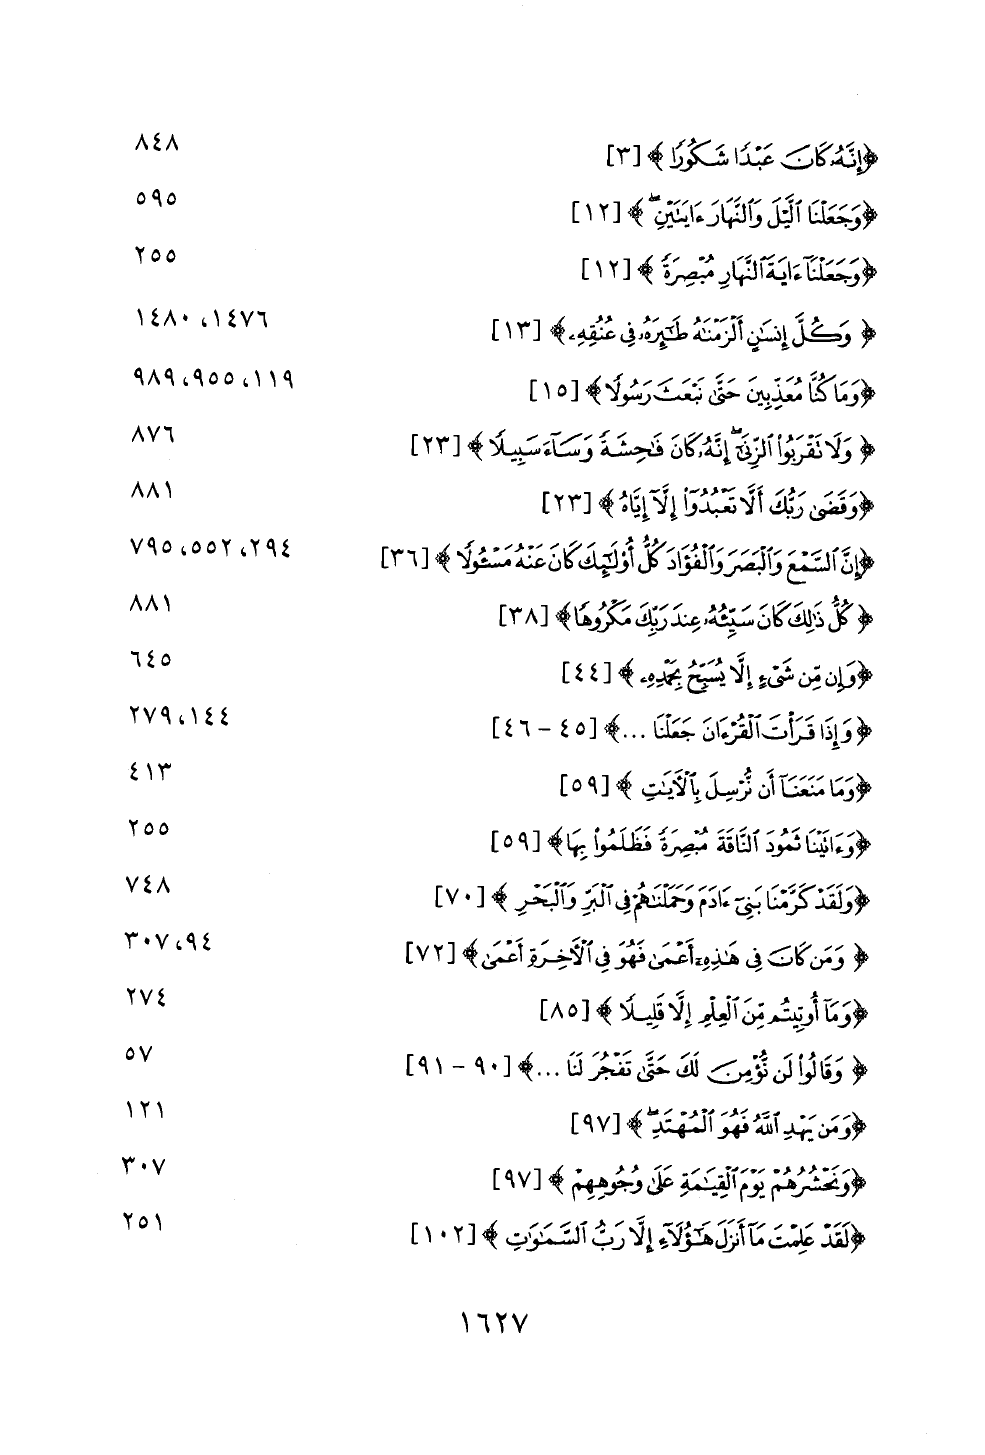 ﴿إِنَّهُۥ كَانَ عَبْدًا شَكُورًا ﴾ [٣] ٨٤٨
﴿وَجَعَلْنَا ٱلَّيْلَ وَٱلنَّهَارَ ءَايَتَيْنِۖ ﴾ [١٢] ٥٩٥
﴿وَجَعَلْنَآ ءَايَةَ ٱلنَّهَارِ مُبْصِرَةً ﴾ [١٢] ٢٥٥
﴿ وَكُلَّ إِنسَٰنٍ أَلْزَمْنَٰهُ طَٰٓئِرَهُۥ فِى عُنُقِهِۦ﴾ [١٣] ١٤٧٦، ١٤٨٠
﴿وَمَا كُنَّا مُعَذِّبِينَ حَتَّىٰ نَبْعَثَ رَسُولًا﴾ [١٥] ١١٩، ٩٥٥، ٩٨٩
﴿ وَلَا تَقْرَبُوا۟ ٱلزِّنَىٰٓۖ إِنَّهُۥ كَانَ فَٰحِشَةً وَسَآءَ سَبِيلًا ﴾ [٢٣] ٨٧٦
﴿وَقَضَىٰ رَبُّكَ أَلَّا تَعْبُدُوٓا۟ إِلَّآ إِيَّاهُ ﴾ [٢٣] ٨٨١
﴿إِنَّ ٱلسَّمْعَ وَٱلْبَصَرَ وَٱلْفُؤَادَ كُلُّ أُو۟لَٰٓئِكَ كَانَ عَنْهُ مَسْـُٔولًا ﴾ [٣٦] ٢٩٤، ٥٥٢، ٧٩٥
﴿ كُلُّ ذَٰلِكَ كَانَ سَيِّئُهُۥ عِندَ رَبِّكَ مَكْرُوهًا﴾ [٣٨] ٨٨١
﴿وَإِن مِّن شَىْءٍ إِلَّا يُسَبِّحُ بِحَمْدِهِۦ ﴾ [٤٤] ٦٤٥
﴿ وَإِذَا قَرَأْتَ ٱلْقُرْءَانَ جَعَلْنَا ...﴾ [٤٥ - ٤٦] ١٤٤، ٢٧٩
﴿وَمَا مَنَعَنَآ أَن نُّرْسِلَ بِٱلْءَايَٰتِ ﴾ [٥٩] ٤١٣
﴿وَءَاتَيْنَا ثَمُودَ ٱلنَّاقَةَ مُبْصِرَةً فَظَلَمُوا۟ بِهَا﴾ [٥٩] ٢٥٥
﴿وَلَقَدْ كَرَّمْنَا بَنِىٓ ءَادَمَ وَحَمَلْنَٰهُمْ فِى ٱلْبَرِّ وَٱلْبَحْرِ ﴾ [٧٠] ٧٤٨
﴿ وَمَن كَانَ فِى هَٰذِهِۦٓ أَعْمَىٰ فَهُوَ فِى ٱلْءَاخِرَةِ أَعْمَىٰ﴾ [٧٢] ٩٤، ٣٠٧
﴿وَمَآ أُوتِيتُم مِّنَ ٱلْعِلْمِ إِلَّا قَلِيلًا ﴾ [٨٥] ٢٧٤
﴿ وَقَالُوا۟ لَن نُّؤْمِنَ لَكَ حَتَّىٰ تَفْجُرَ لَنَا ...﴾ [٩٠ - ٩١] ٥٧
﴿وَمَن يَهْدِ ٱللَّهُ فَهُوَ ٱلْمُهْتَدِۖ ﴾ [٩٧] ١٢١
﴿وَنَحْشُرُهُمْ يَوْمَ ٱلْقِيَٰمَةِ عَلَىٰ وُجُوهِهِمْ ﴾ [٩٧] ٣٠٧
﴿لَقَدْ عَلِمْتَ مَآ أَنزَلَ هَٰٓؤُلَآءِ إِلَّا رَبُّ ٱلسَّمَٰوَٰتِ ﴾ [١٠٢] ٢٥١
١٦٢٧